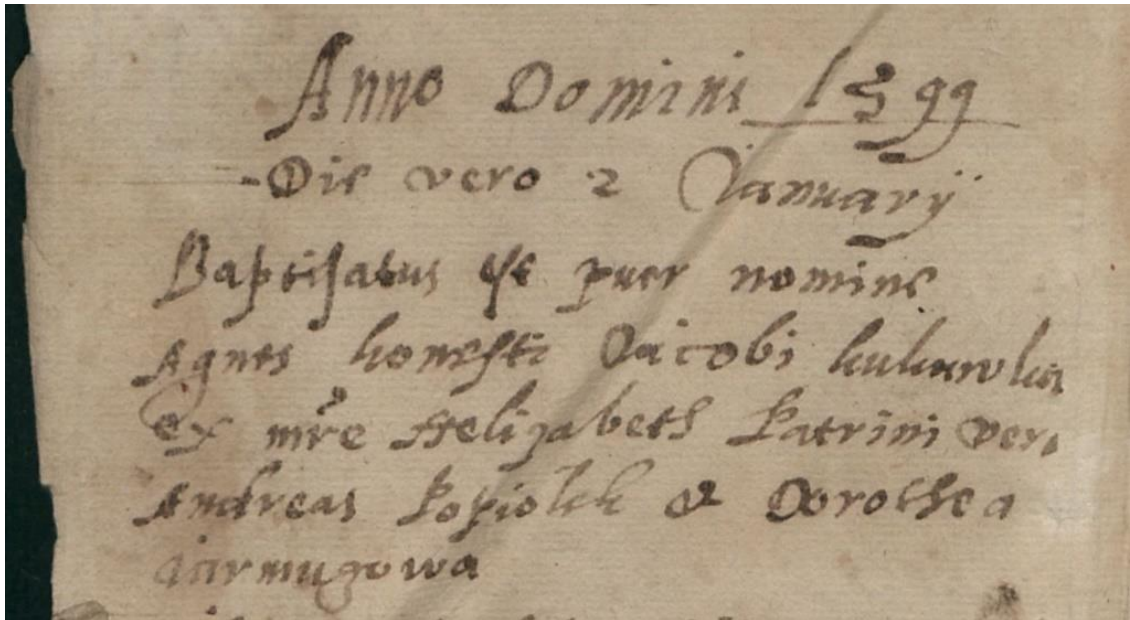 Anno Domini 1599
Die vero 2 Januarij
Baptisatus est puer nomine
Agnes honesti Jacobi kukawka
ex mre Helizabeth Patrini vero
Andreas Popiolek & Dorothea
Jarmugowa